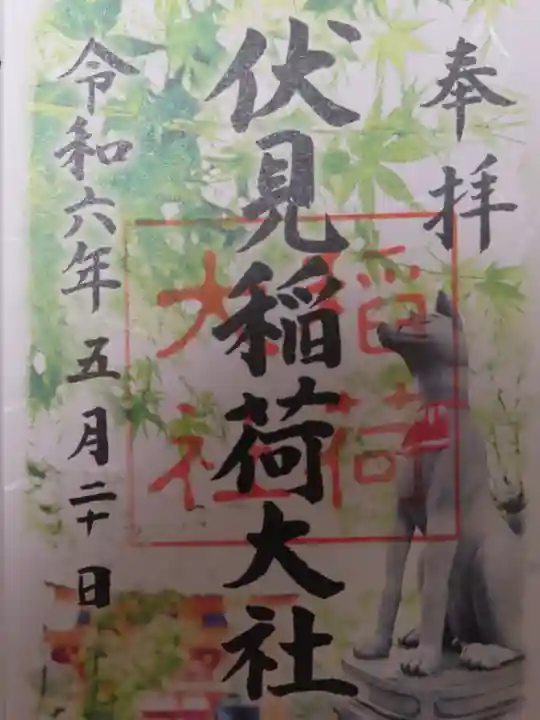 奉拝
伏見稲荷大社
稲荷
大社
令和六年五月二十日